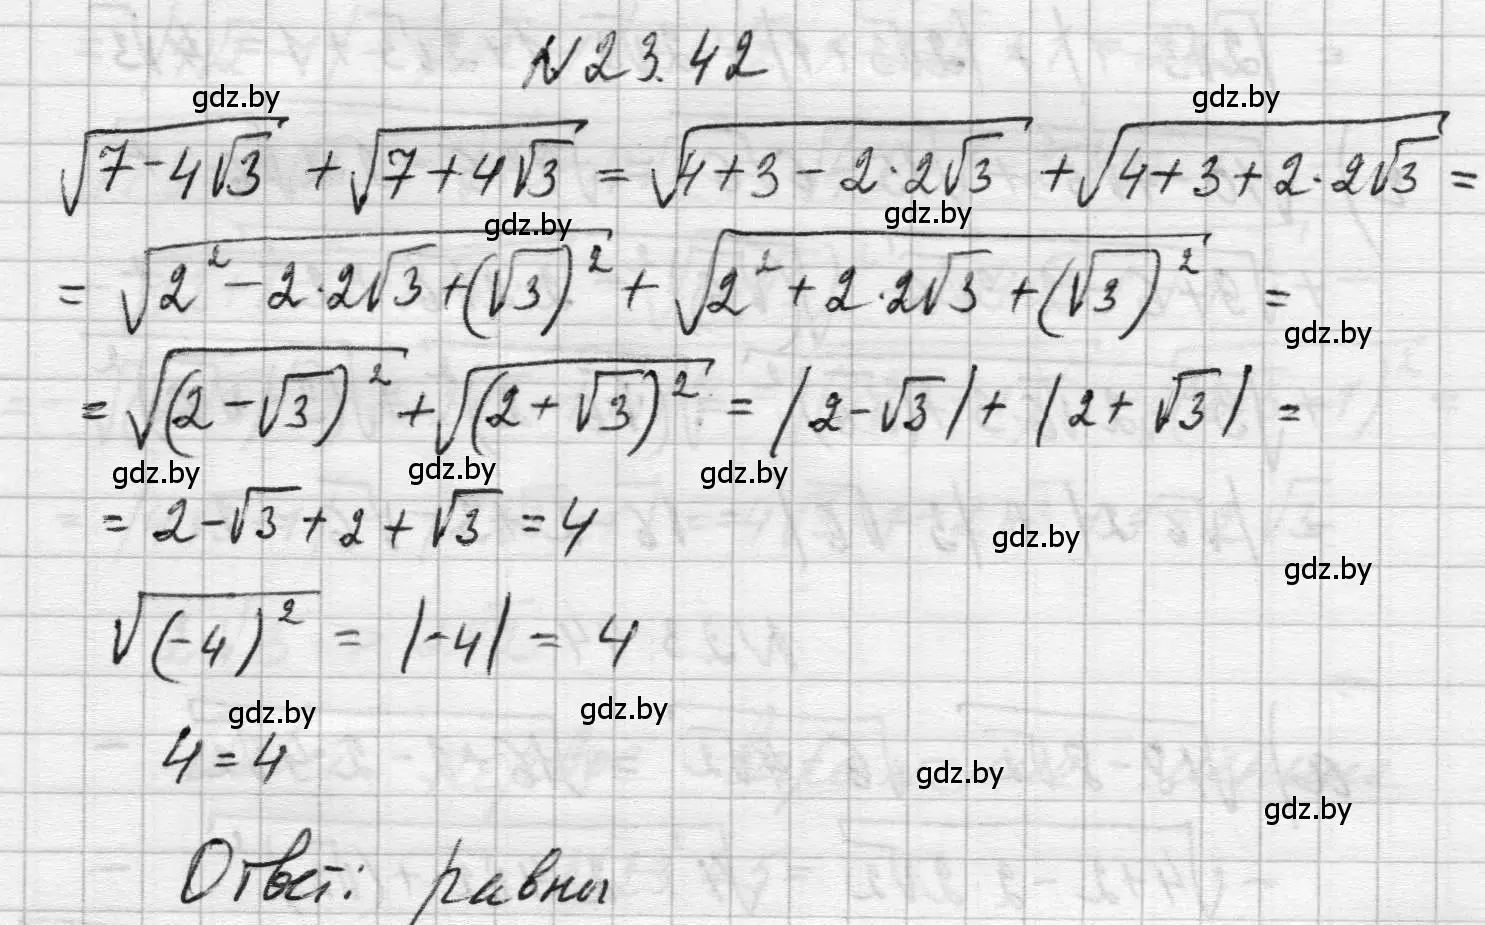 N 23.42
gdz.by gdz.by
√(7 - 4√3) + √(7 + 4√3) = √(4 + 3 - 2·2√3) + √(4 + 3 + 2·2√3) =
gdz.by gdz.by
= √(2² - 2·2√3 + (√3)²) + √(2² + 2·2√3 + (√3)²) =
gdz.by
= √((2 - √3)²) + √((2 + √3)²) = |2 - √3| + |2 + √3| =
gdz.by gdz.by gdz.by
= 2 - √3 + 2 + √3 = 4
gdz.by
gdz.by
√((-4)²) = |-4| = 4
gdz.by gdz.by
4 = 4
gdz.by
gdz.by
Ответ: равны